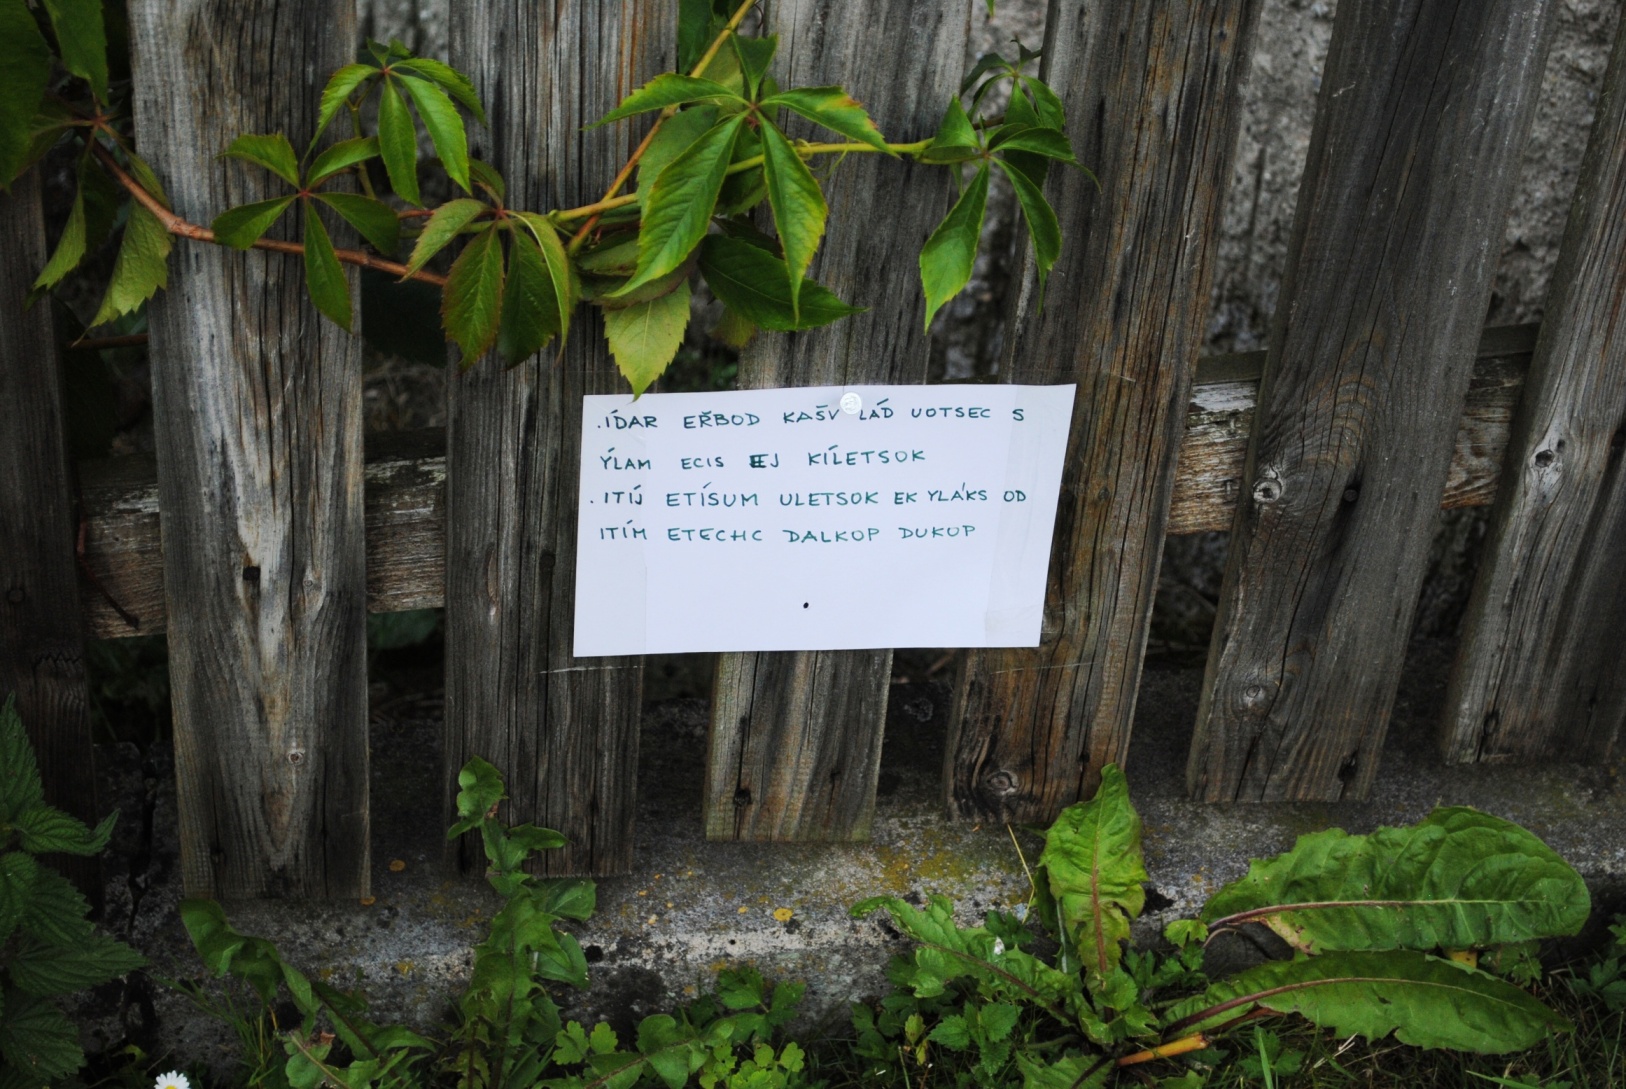 .ÍDAR EŘBOD KAŠV LÁD UOTSEC S
ÝLAM ECIS EJ KÍLETSOK
.ITÍJ ETÍSUM ULETSOK EK YLÁKS OD
ITÍM ETECHC DALKOP DUKOP